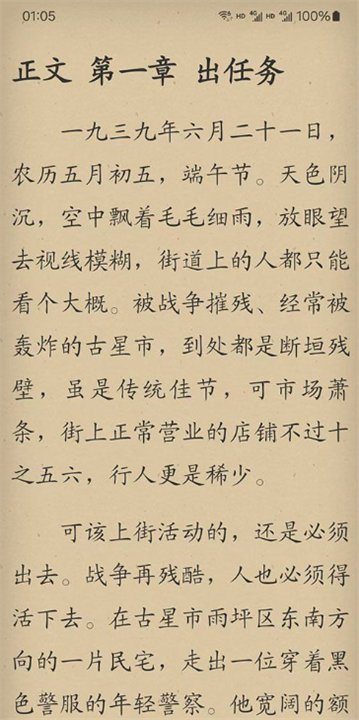 01:05 HD 4G HD 4G 100%
正文 第一章 出任务
一九三九年六月二十一日，
农历五月初五，端午节。天色阴
沉，空中飘着毛毛细雨，放眼望
去视线模糊，街道上的人都只能
看个大概。被战争摧残、经常被
轰炸的古星市，到处都是断垣残
壁，虽是传统佳节，可市场萧
条，街上正常营业的店铺不过十
之五六，行人更是稀少。
可该上街活动的，还是必须
出去。战争再残酷，人也必须得
活下去。在古星市雨坪区东南方
向的一片民宅，走出一位穿着黑
色警服的年轻警察。他宽阔的额